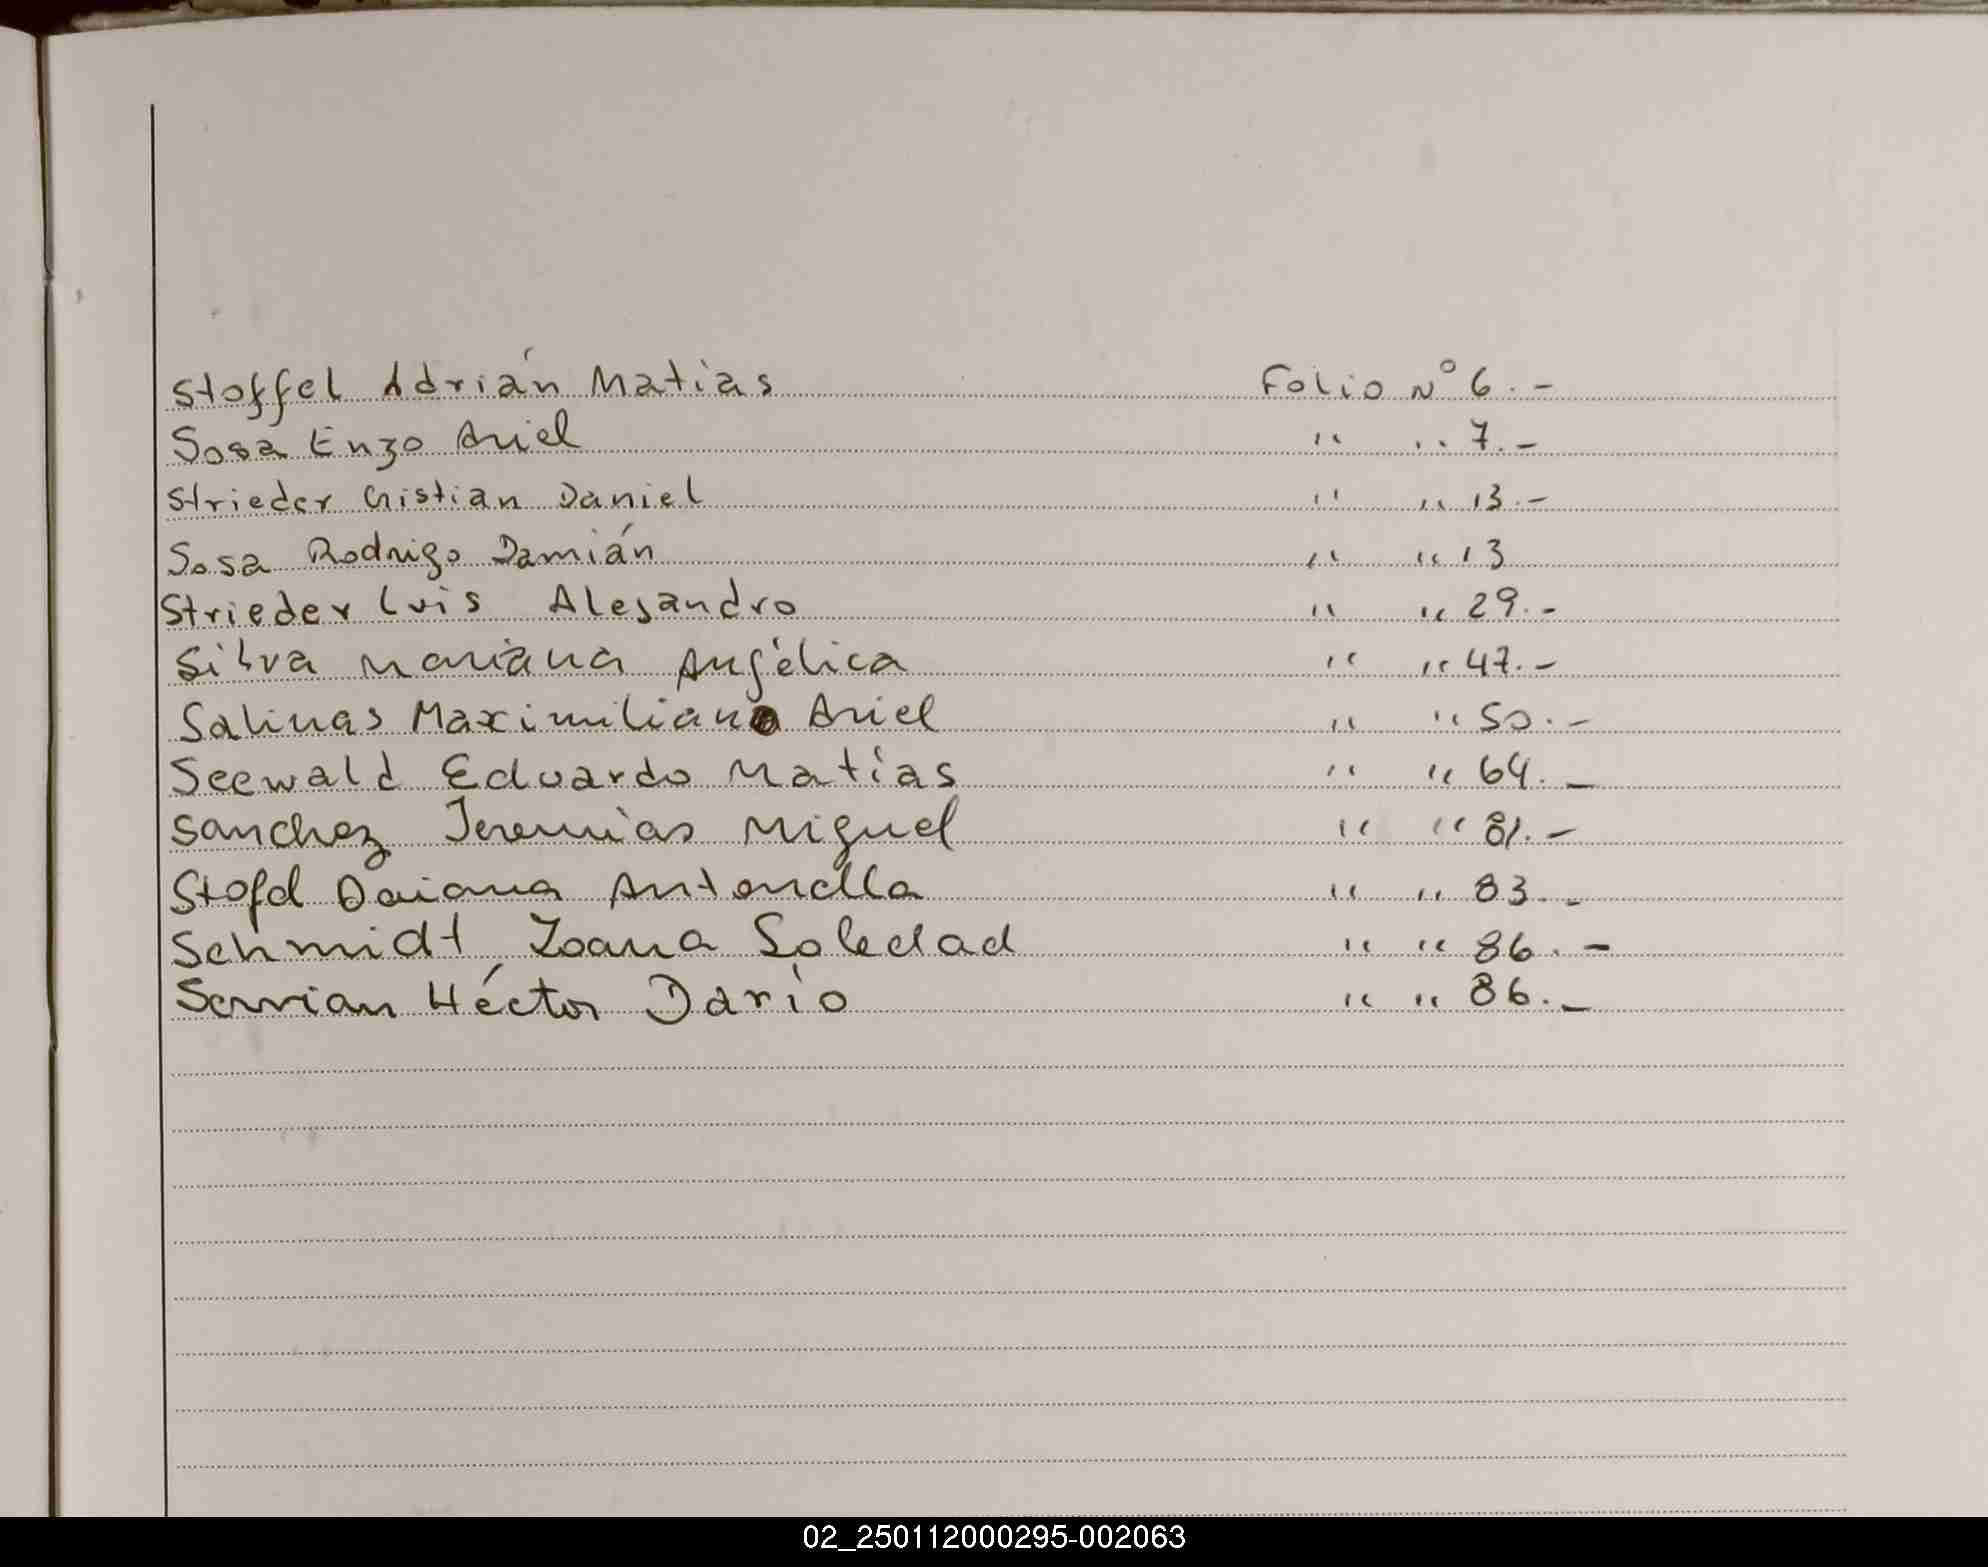 Stoffel Adrián Matias Folio Nº 6.-
Sosa Enzo Ariel " " 7.-
Strieder Cristian Daniel " " 13.-
Sosa Rodrigo Damián " " 13
Strieder Luis Alejandro " " 29.-
Silva Mariana Angélica " " 47.-
Salinas Maximiliano Ariel " " 50.-
Seewald Eduardo Matías " " 64.-
Sanchez Jeremias Miguel " " 81.-
Stofel Daiana Antonella " " 83.-
Schmidt Ioana Soledad " " 86.-
Servian Héctor Darío " " 86.-
02_250112000295-002063